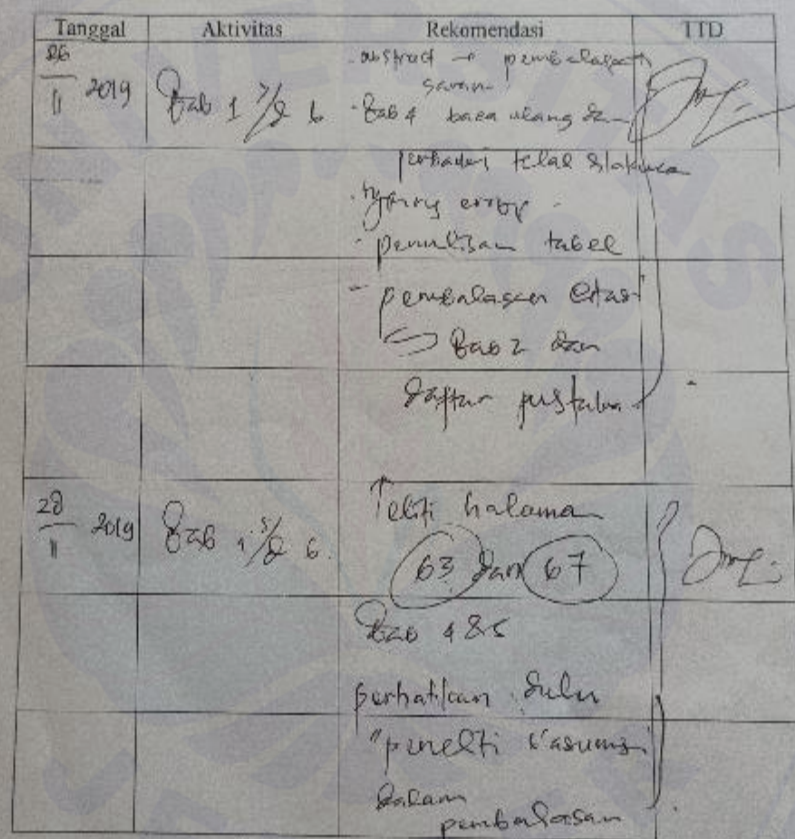 Tanggal Aktivitas Rekomendasi TTD
26/11 2019 Bab 1 s/d 6
- abstract → pembahasan
saran
- Bab 4 baca ulang dan
telah
- typing error -
- penulisan tabel
- pembahasan
↳ Bab 2 dan
daftar pustaka
28/11 2019 Bab 1 s/d 6.
Teliti halaman
63 dan 67
Bab 4 & 5
perhatikan dulu
"peneliti b'asumsi
dalam
pembahasan